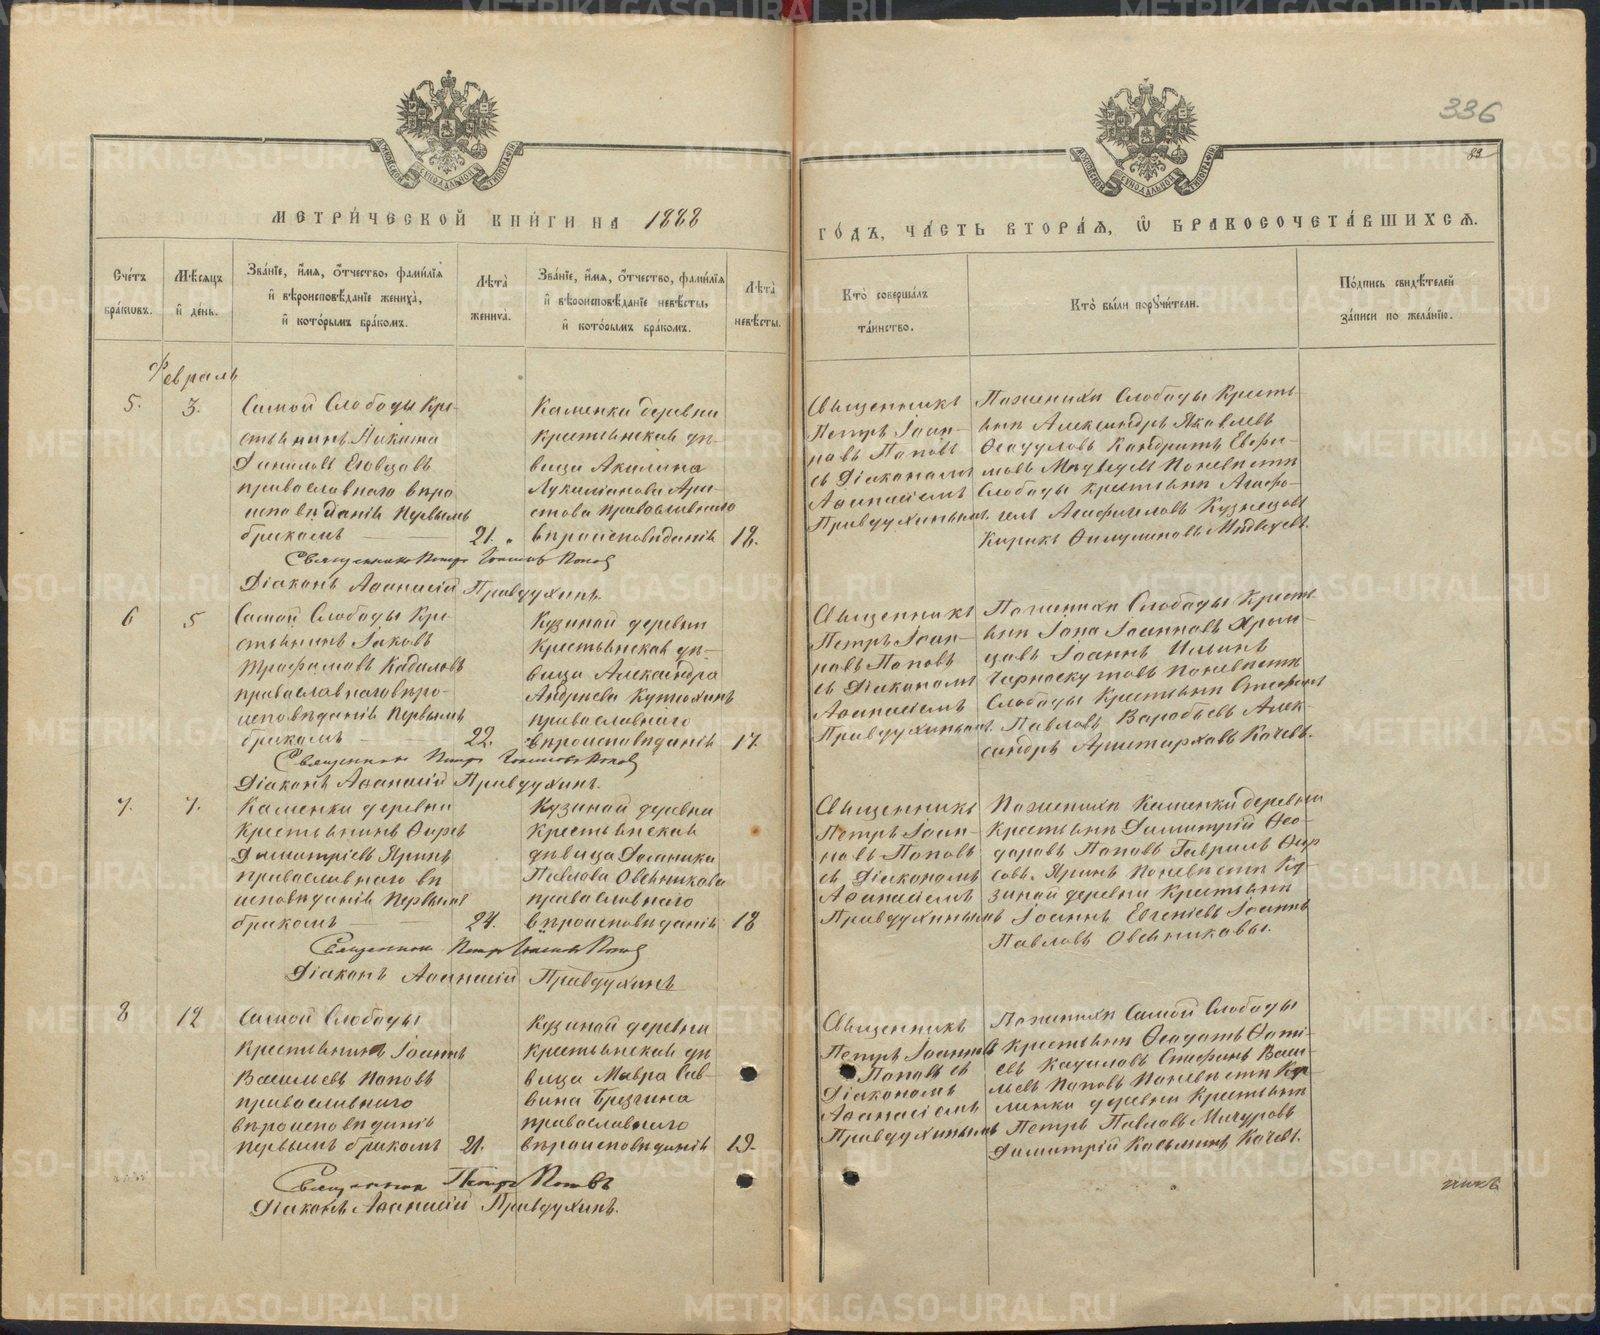 336
82
МЕТРИ́ЧЕСКОЙ КНИ́ГИ НА 1888
ГО́ДЪ, ЧА́СТЬ ВТОРА́Ѧ, Ѡ БРАКОСОЧЕТА́ВШИХСѦ.
Сче́тъ бра́ковъ.
Мѣсяцъ и́ де́нь.
Зва́нїе, и́мѧ, о́тчество, фами́лїѧ и́ вѣроисповѣ́данїе жениха̀, и́ кото́рымъ бра́комъ.
Лѣта̀ жениха̀.
Зва́нїе, и́мѧ, о́тчество, фами́лїѧ и́ вѣроисповѣ́данїе невѣ́сты, и́ кото́рымъ бра́комъ.
Лѣта̀ невѣ́сты.
Кто̀ соверша́лъ та́инство.
Кто̀ бы́ли порꙋчи́тели.
По́дпись свидѣ́телей за́писи по жела́нїю.
Февраль
5.
3.
Самой Слободы кре-
стьянинъ Никита
Даниловъ
православнаго вѣро
исповѣданія первымъ
бракомъ
21.
Каменки деревни
крестьянская дѣ-
вица Акилина
Лукиліанова
православнаго
вѣроисповѣданія
18.
Священникъ
Петръ Іоан-
новъ Поповъ
съ Діакономъ
Аѳанасіемъ
Правдухинымъ.
По женихѣ Слободы кресть-
яне Александръ Яковлевъ
Кондратъ Евфи-
мовъ Медведевъ по невѣстѣ
Слободы крестьяне Агафо-
Кузнецовъ
Кирикъ Медведевъ.
Священникъ Петръ Іоанновъ Поповъ
Діаконъ Аѳанасій Правдухинъ.
6
5
Самой Слободы кре-
стьянинъ Іаковъ
Трофимовъ Кадиловъ
православнаго вѣро-
исповѣданія первымъ
бракомъ
22.
Кузиной деревни
крестьянская дѣ-
вица Александра
Андреева Кутюхинъ
православнаго
вѣроисповѣданія
17.
Священникъ
Петръ Іоан-
новъ Поповъ
съ Діакономъ
Аѳанасіемъ
Правдухинымъ.
По женихѣ Слободы кресть
яне Іона Іоанновъ Хром-
цовъ Іоаннъ Ильинъ
Черноскутовъ по невѣстѣ
Слободы крестьяне Стефанъ
Павловъ Воробьевъ Алек-
сандръ Аристарховъ Качевъ.
Священникъ Петръ Іоанновъ Поповъ
Діаконъ Аѳанасій Правдухинъ.
7.
7.
Каменки деревни
крестьянинъ Ѳирсъ
Димитріевъ Яринъ
православнаго вѣ
исповѣданія первымъ
бракомъ
24.
Кузиной деревни
крестьянская
дѣвица Доминика
Павлова Овсянникова
православнаго
вѣроисповѣданія
18
Священникъ
Петръ Іоан-
новъ Поповъ
съ Діакономъ
Аѳанасіемъ
Правдухинымъ
По женихѣ Каменки деревни
крестьяне Димитрій Ѳео-
доровъ Поповъ Гавріилъ Ѳир
совъ Яринъ по невѣстѣ Ку-
зиной деревни крестьяне
Іоаннъ Евгеніевъ Іоаннъ
Павловъ Овсянниковы.
Священникъ Петръ Іоанновъ Поповъ
Діаконъ Аѳанасій Правдухинъ
8
12
Самой Слободы
крестьянинъ Іоаннъ
Васильевъ Поповъ
православнаго
вѣроисповѣданія
первымъ бракомъ
21.
Кузиной деревни
крестьянская дѣ
вица Мавра Сав-
вина Брезгина
православнаго
вѣроисповѣданія
19.
Священникъ
Петръ Іоанновъ
Поповъ съ
Діакономъ
Аѳанасіемъ
Правдухинымъ
По женихѣ Самой Слободы
крестьяне Ѳеодотъ Ѳоті-
евъ Кадиловъ Стефанъ Васи-
льевъ Поповъ по невѣстѣ
деревни крестьяне
Петръ Павловъ Мичуровъ
Димитрій Косминъ Качевъ.
Священникъ Петръ Поповъ
Діаконъ Аѳанасій Правдухинъ.